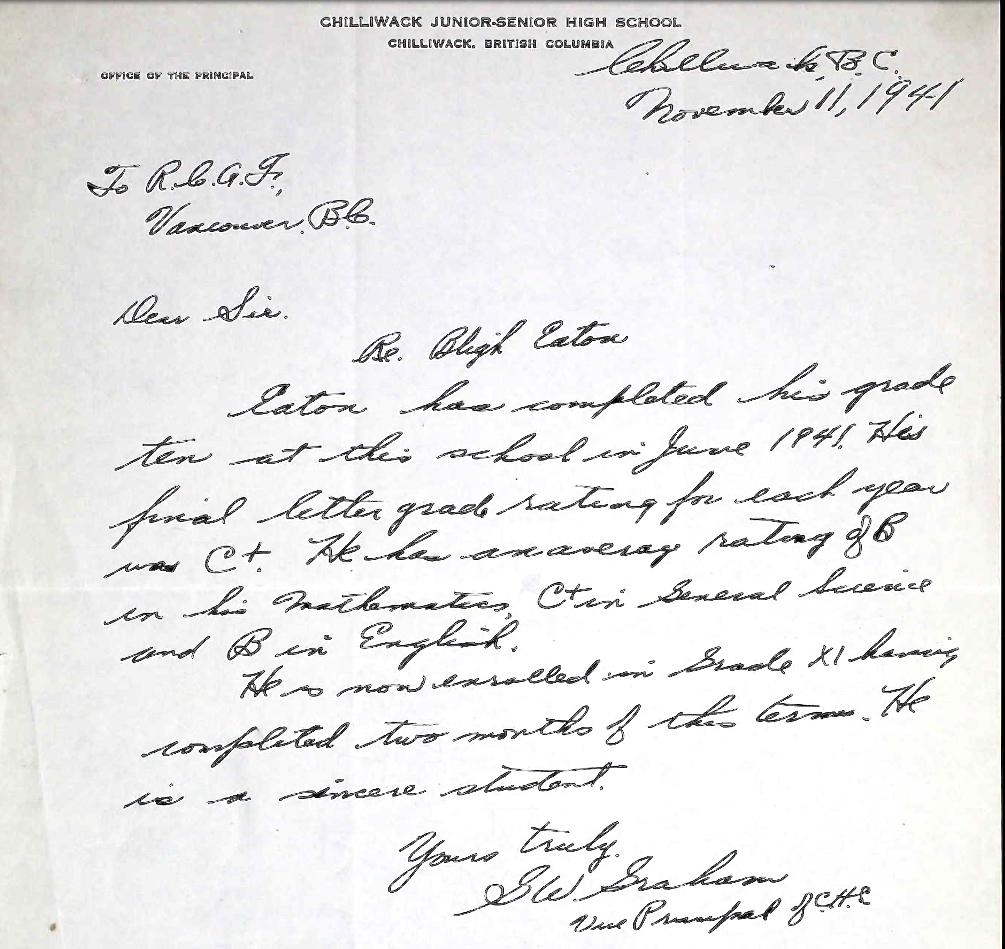 CHILLIWACK JUNIOR-SENIOR HIGH SCHOOL
CHILLIWACK, BRITISH COLUMBIA
OFFICE OF THE PRINCIPAL
Chilliwack, B.C.
November 11, 1941
To R.C.A.F.,
Vancouver, B.C.
Dear Sir.
Re. Bligh Eaton
Eaton has completed his grade
ten at this school in June 1941. His
final letter grade rating for each year
was C+. He has an average rating of B
in his Mathematics, C+ in General Science
and B in English.
He is now enrolled in Grade XI having
completed two months of this term. He
is a sincere student.
Yours truly.
GW Graham
Vice Principal of C.H.S